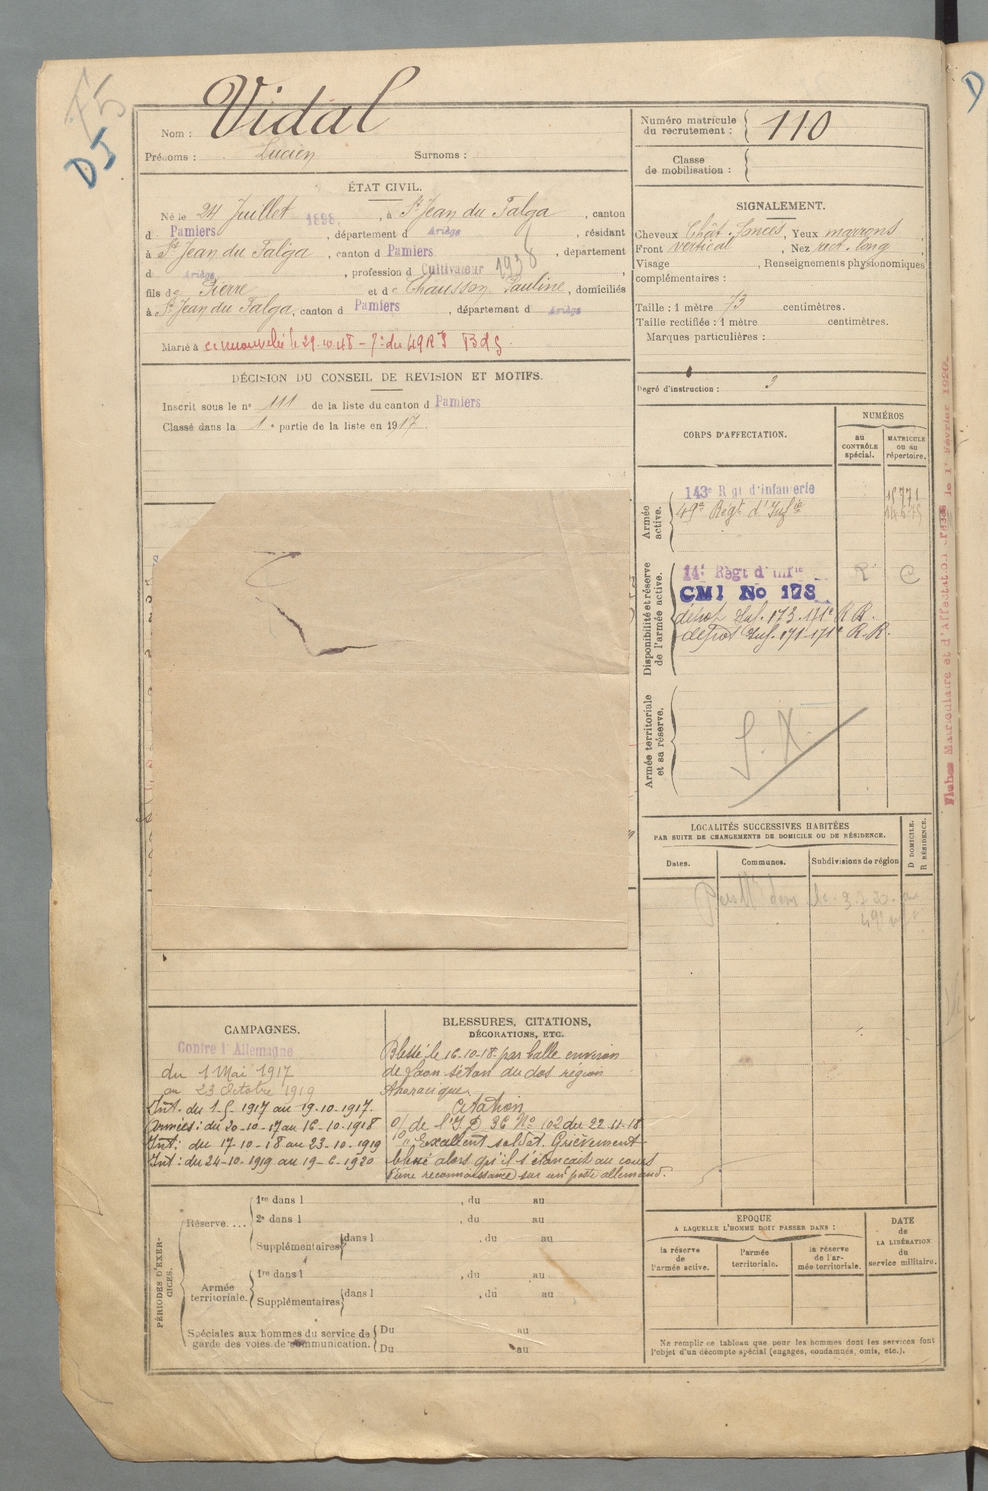 D5
Nom : Vidal
Prénoms : Lucien Surnoms :
Numéro matricule du recrutement : 110
Classe de mobilisation :
ÉTAT CIVIL.
Né le 24 Juillet 1898, à St Jean du Falga, canton
d Pamiers, département d Ariège, résidant
à St Jean du Falga, canton d Pamiers, département
d Ariège, profession d Cultivateur 1938
fils de Pierre et de Chausson Pauline, domiciliés
à St Jean du Falga, canton d Pamiers, département d Ariège
Marié à
SIGNALEMENT.
Cheveux Chât. foncés, Yeux marrons
Front vertical, Nez rect. long
Visage , Renseignements physionomiques
complémentaires :
Taille : 1 mètre 73 centimètres.
Taille rectifiée : 1 mètre centimètres.
Marques particulières :
Degré d'instruction : 3
DÉCISION DU CONSEIL DE REVISION ET MOTIFS.
Inscrit sous le n° 111 de la liste du canton d Pamiers
Classé dans la 1e partie de la liste en 1917.
CORPS D'AFFECTATION.
NUMÉROS
au CONTRÔLE spécial.
MATRICULE ou au répertoire.
Armée active.
143e Rgt d'infanterie
49e Régt d'Infie
Disponibilité et réserve de l'armée active.
14e Règt d'Infie R C
CMI No 178
dépôt Inf. 173-171e R.R.
dépôt Inf. 171-171e R.R.
Armée territoriale et sa réserve.
S.X.
Fiches Matriculaire et d'Affectation le 1er Février 1920.
LOCALITÉS SUCCESSIVES HABITÉES
PAR SUITE DE CHANGEMENTS DE DOMICILE OU DE RÉSIDENCE.
Dates. Communes. Subdivisions de région
D DOMICILE. R RÉSIDENCE.
CAMPAGNES.
Contre l'Allemagne
du 1 Mai 1917
au 23 Octobre 1919
Int. du 1-5-1917 au 19-10-1917.
Armées : du 20-10-17 au 16-10-1918
Int : du 17-10-18 au 23-10-1919
Int : du 24-10-1919 au 19-6-1920
BLESSURES, CITATIONS,
DÉCORATIONS, ETC.
Blessé le 16-10-18 par balle environ
de Laon séton du dos région
thoracique.
Citation
O/ de l'I D 36 No 102 du 22-11-18
"Excellent soldat. Grièvement
blessé alors qu'il s'élançait au cours
d'une reconnaissance sur un poste allemand.
PÉRIODES D'EXERCICES.
Réserve....
1re dans l , du au
2e dans l , du au
Supplémentaires dans l , du au
Armée territoriale.
1re dans l , du au
Supplémentaires dans l , du au
Spéciales aux hommes du service de garde des voies de communication. Du au
Du au
EPOQUE
A LAQUELLE L'HOMME DOIT PASSER DANS :
la réserve de l'armée active.
l'armée territoriale.
la réserve de l'armée territoriale.
DATE de LA LIBÉRATION du service militaire.
Ne remplir ce tableau que pour les hommes dont les services font
l'objet d'un décompte spécial (engagés, condamnés, omis, etc.).